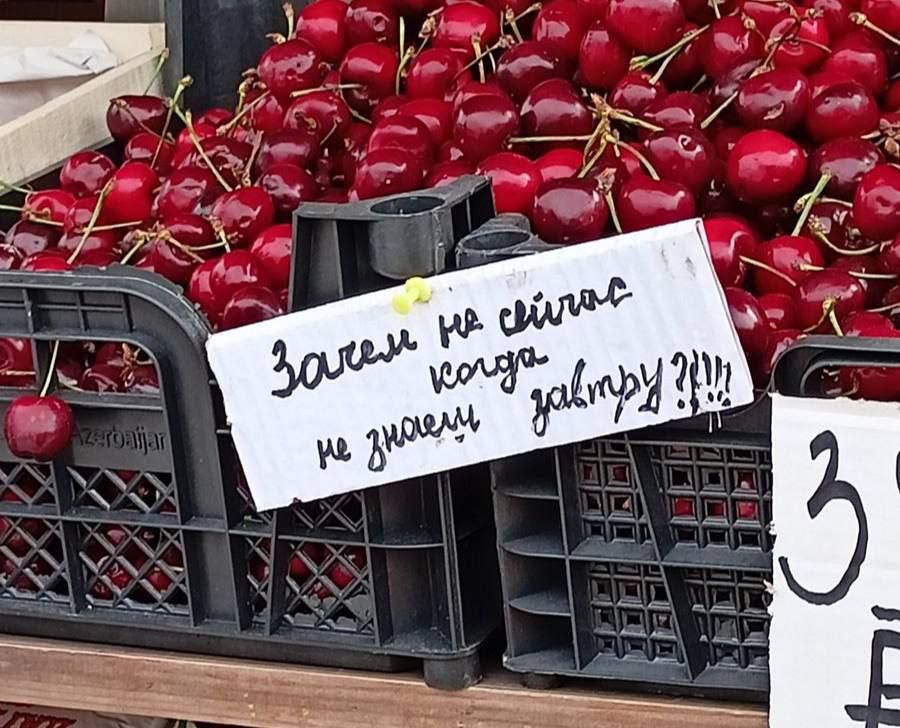 Зачем на сейчас
когда
не знаеш завтру?!!!!
Azerbaijan
3